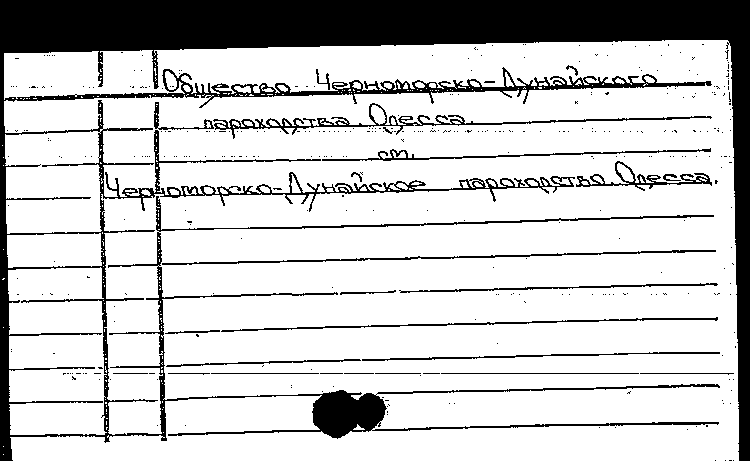 Общество Черноморско-Дунайского
пароходства. Одесса.
см.
Черноморско-Дунайское пароходство. Одесса.